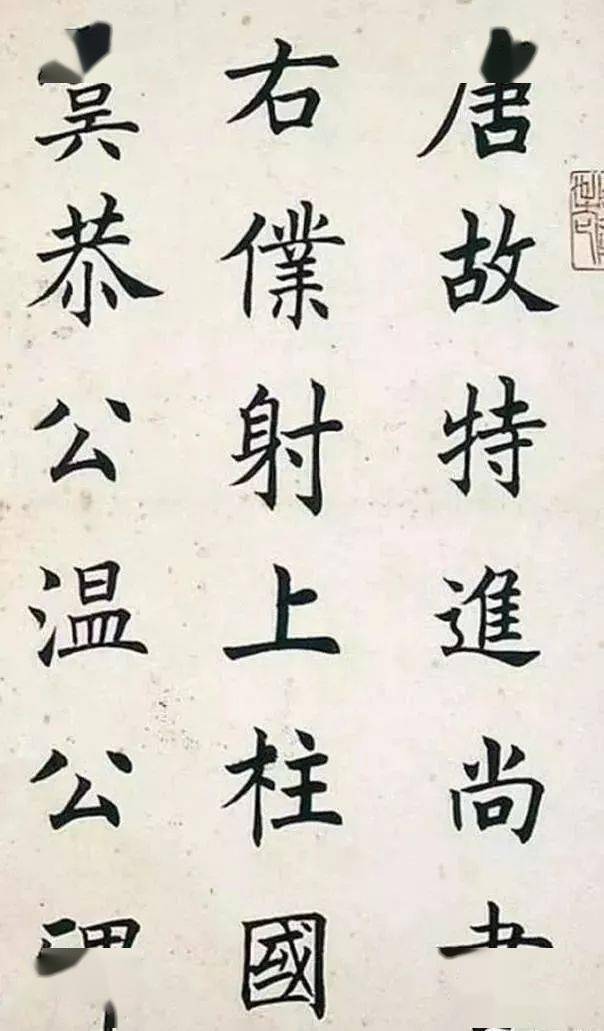 唐故特進尚
右僕射上柱國
恭公温公